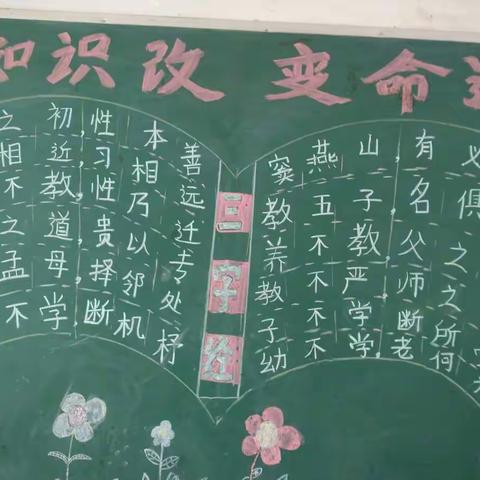 知识改变命运
之初,性本善
相近,习相远
不教,性乃迁
之道,贵以专
孟母,择邻处
不学,断机杼
三字经
窦燕山,有必
教五子,名俱
养不教,父之
教不严,师之
子不学,断所
幼不学,老何